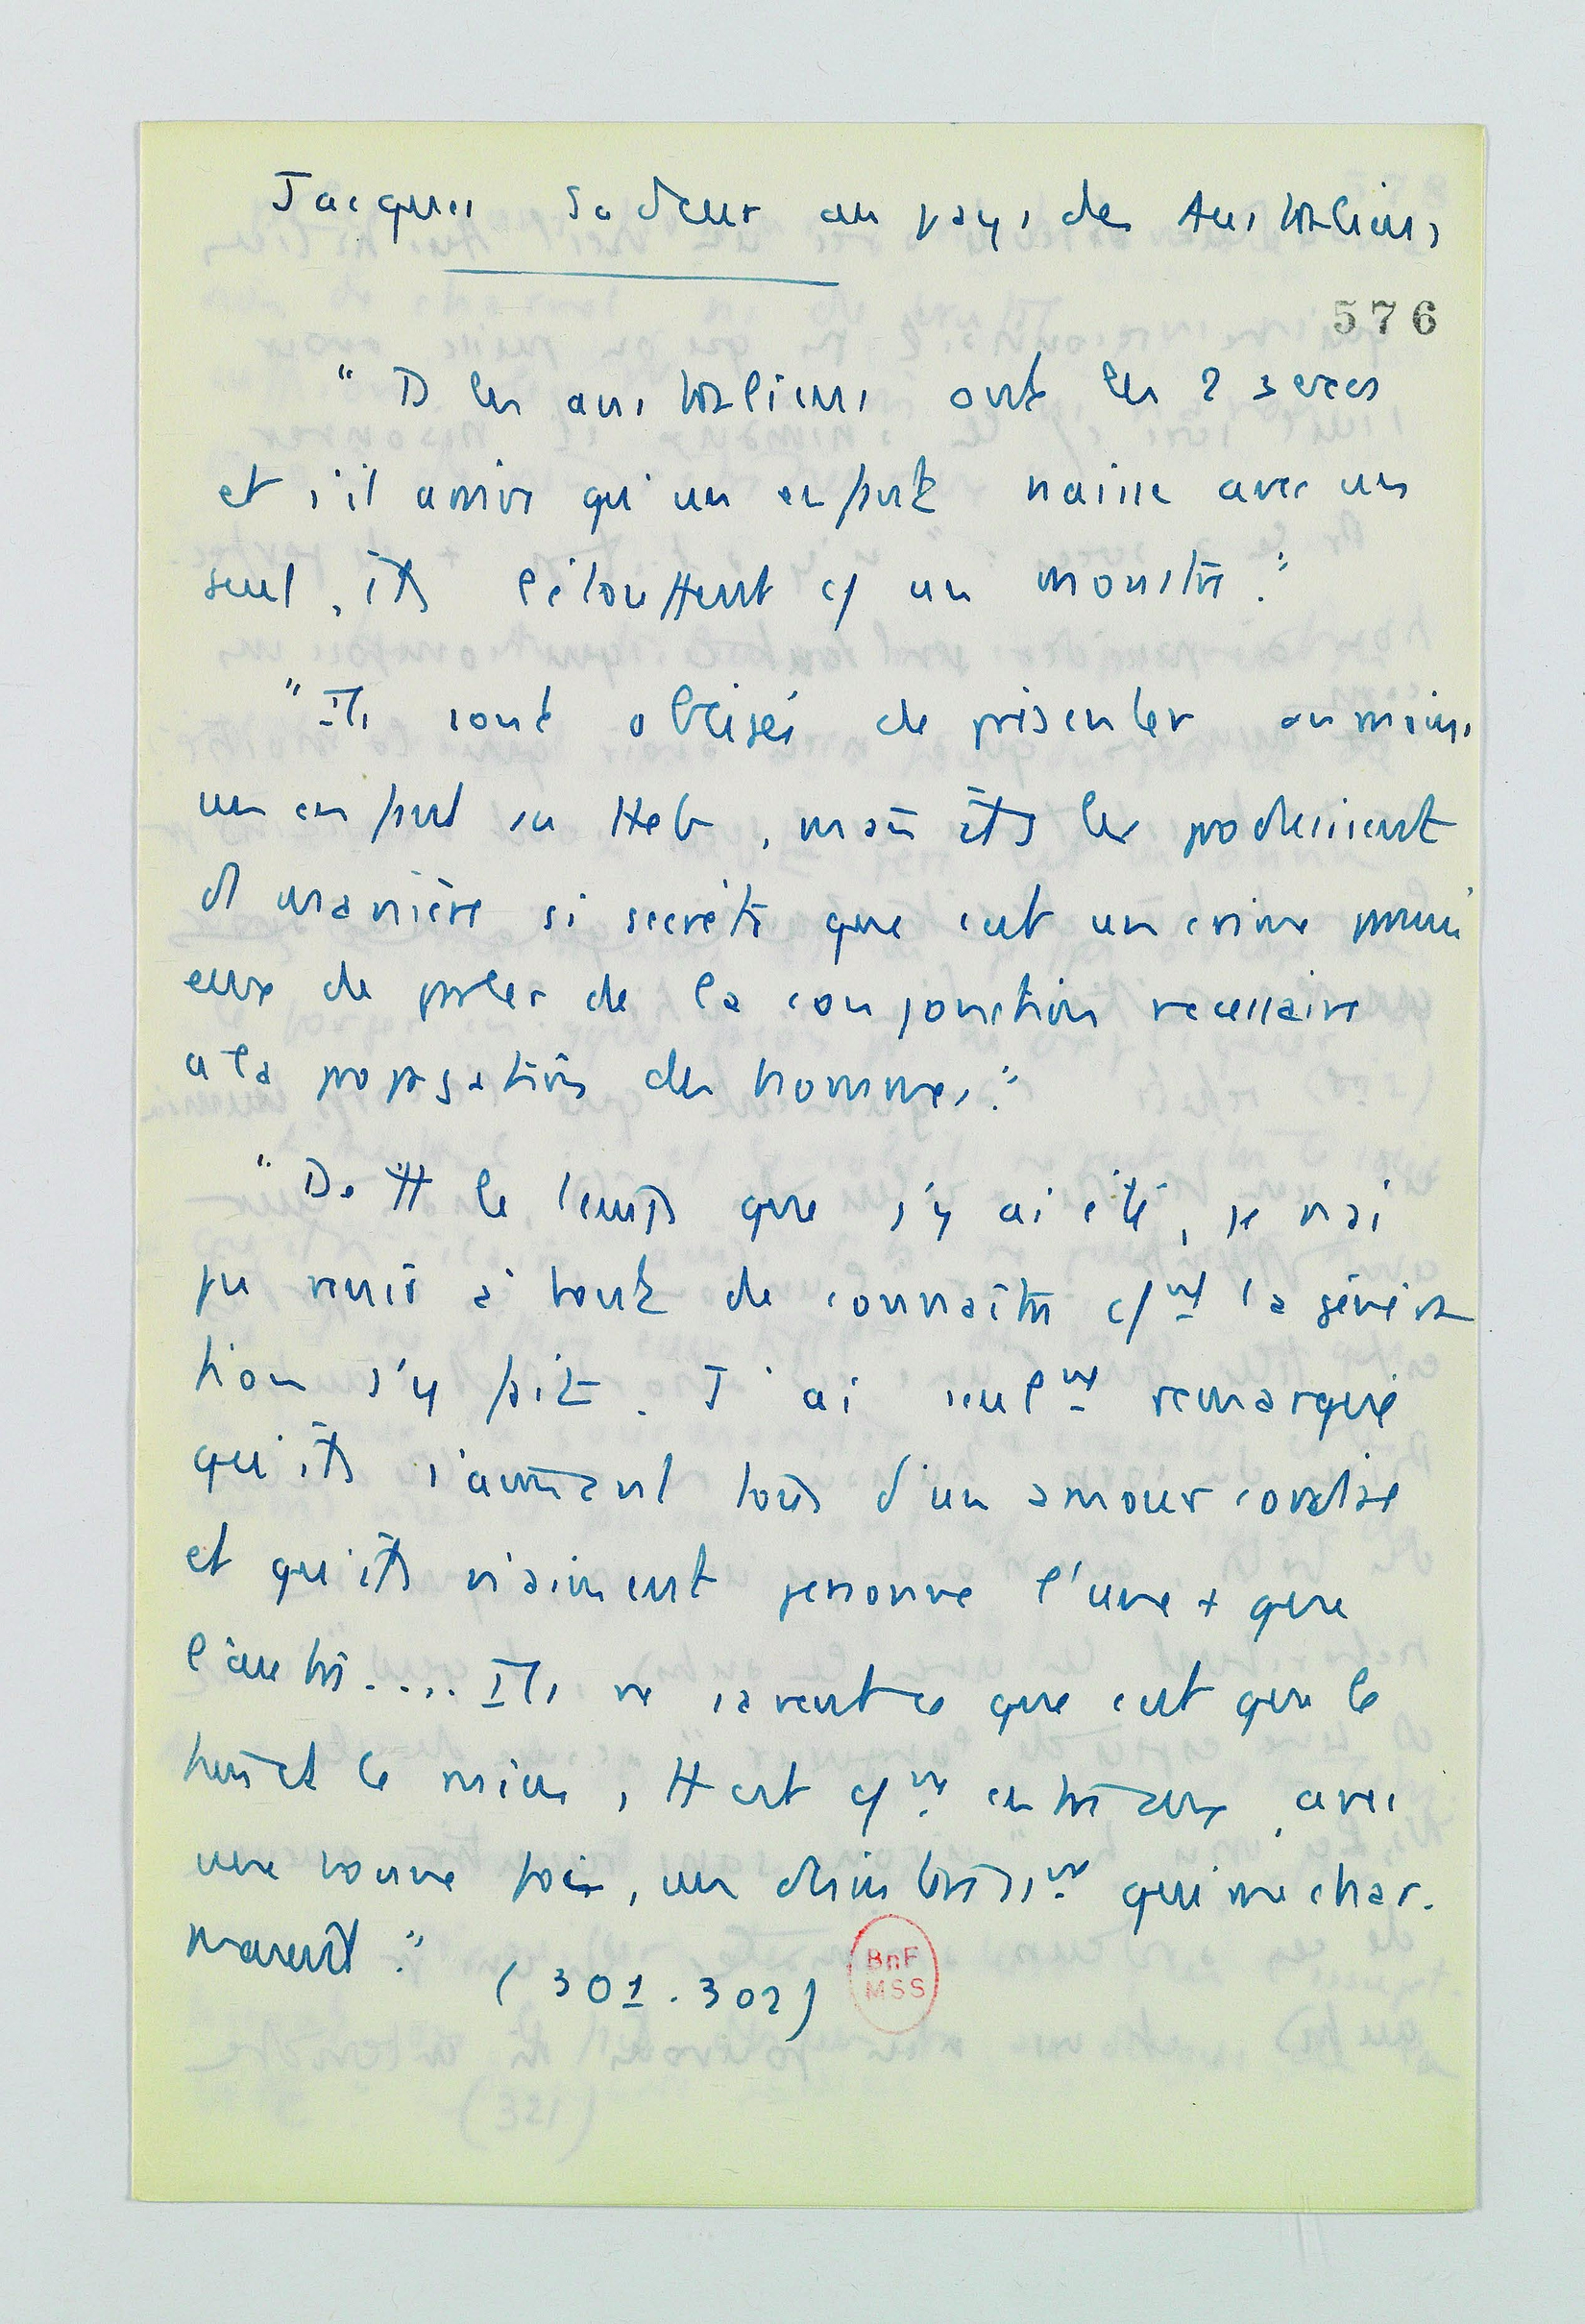 Jacques Sadeur au pays des Australiens
576
" Ts les australiens ont les 2 sexes
et s'il arrive qu'un enfant naisse avec un
seul, ils l'étouffent c/ un monstre."
"Ils sont obligés de présenter au moins
un enfant au Heb, mais ils les produisent
d' manière si secrète que c'est un crime parmi
eux de parler de la conjonction necessaire
a la propagation des hommes."
"De tt le temps que j'y ai été, je n'ai
pu venir à bout de connaître c/nt la généra
tion s'y fait. J'ai seulnt remarqué
qu'ils s'aimaient tous d'un amour cordial
et qu'ils n'aiment personne l'une + que
l'autre.... Ils ne savent ce que c'est que le
tien et le mien, tt est c/n entre eux, avec
une bonne foi, un désintéressnt qui me char-
maient."
(301-302)
BnF
MSS